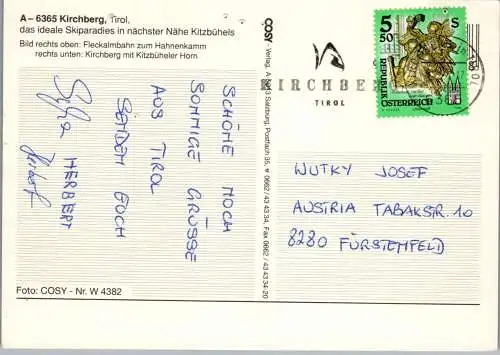 A – 6365 Kirchberg, Tirol.
das ideale Skiparadies in nächster Nähe Kitzbühels
Bild rechts oben: Fleckalmbahn zum Hahnenkamm
rechts unten: Kirchberg mit Kitzbüheler Horn
SCHÖNE NOCH
SONNIGE GRÜSSE
AUS TIROL
SENDEN EUCH
HERBERT
Foto: COSY - Nr. W 4382
COSY - Verlag, A Salzburg, Postfach 35, ☎ 0662 / 43 43 34, Fax 0662 / 43 43 34-20
KIRCHBE
TIROL
5 50 S
REPUBLIK
ÖSTERREICH
WUTKY JOSEF
AUSTRIA TABAKSTR. 10
8280 FÜRSTENFELD